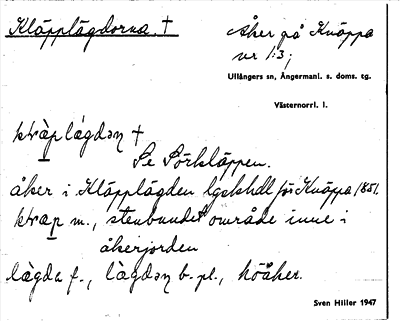 Kläpplägdorna. †
Åker på Knäppa
nr 1:3;
Ullångers sn, Ångermanl. s. doms. tg.
Västernorrl. l.
kḷæ̀p lágdən †
Se Sörkläppen.
åker i Kläpplägden lgskhdl för Knäppa 1851.
kḷæp m., stenbundet område inne i
åkerjorden
lägda f., lägdən b. pl., höåker.
Sven Hiller 1947